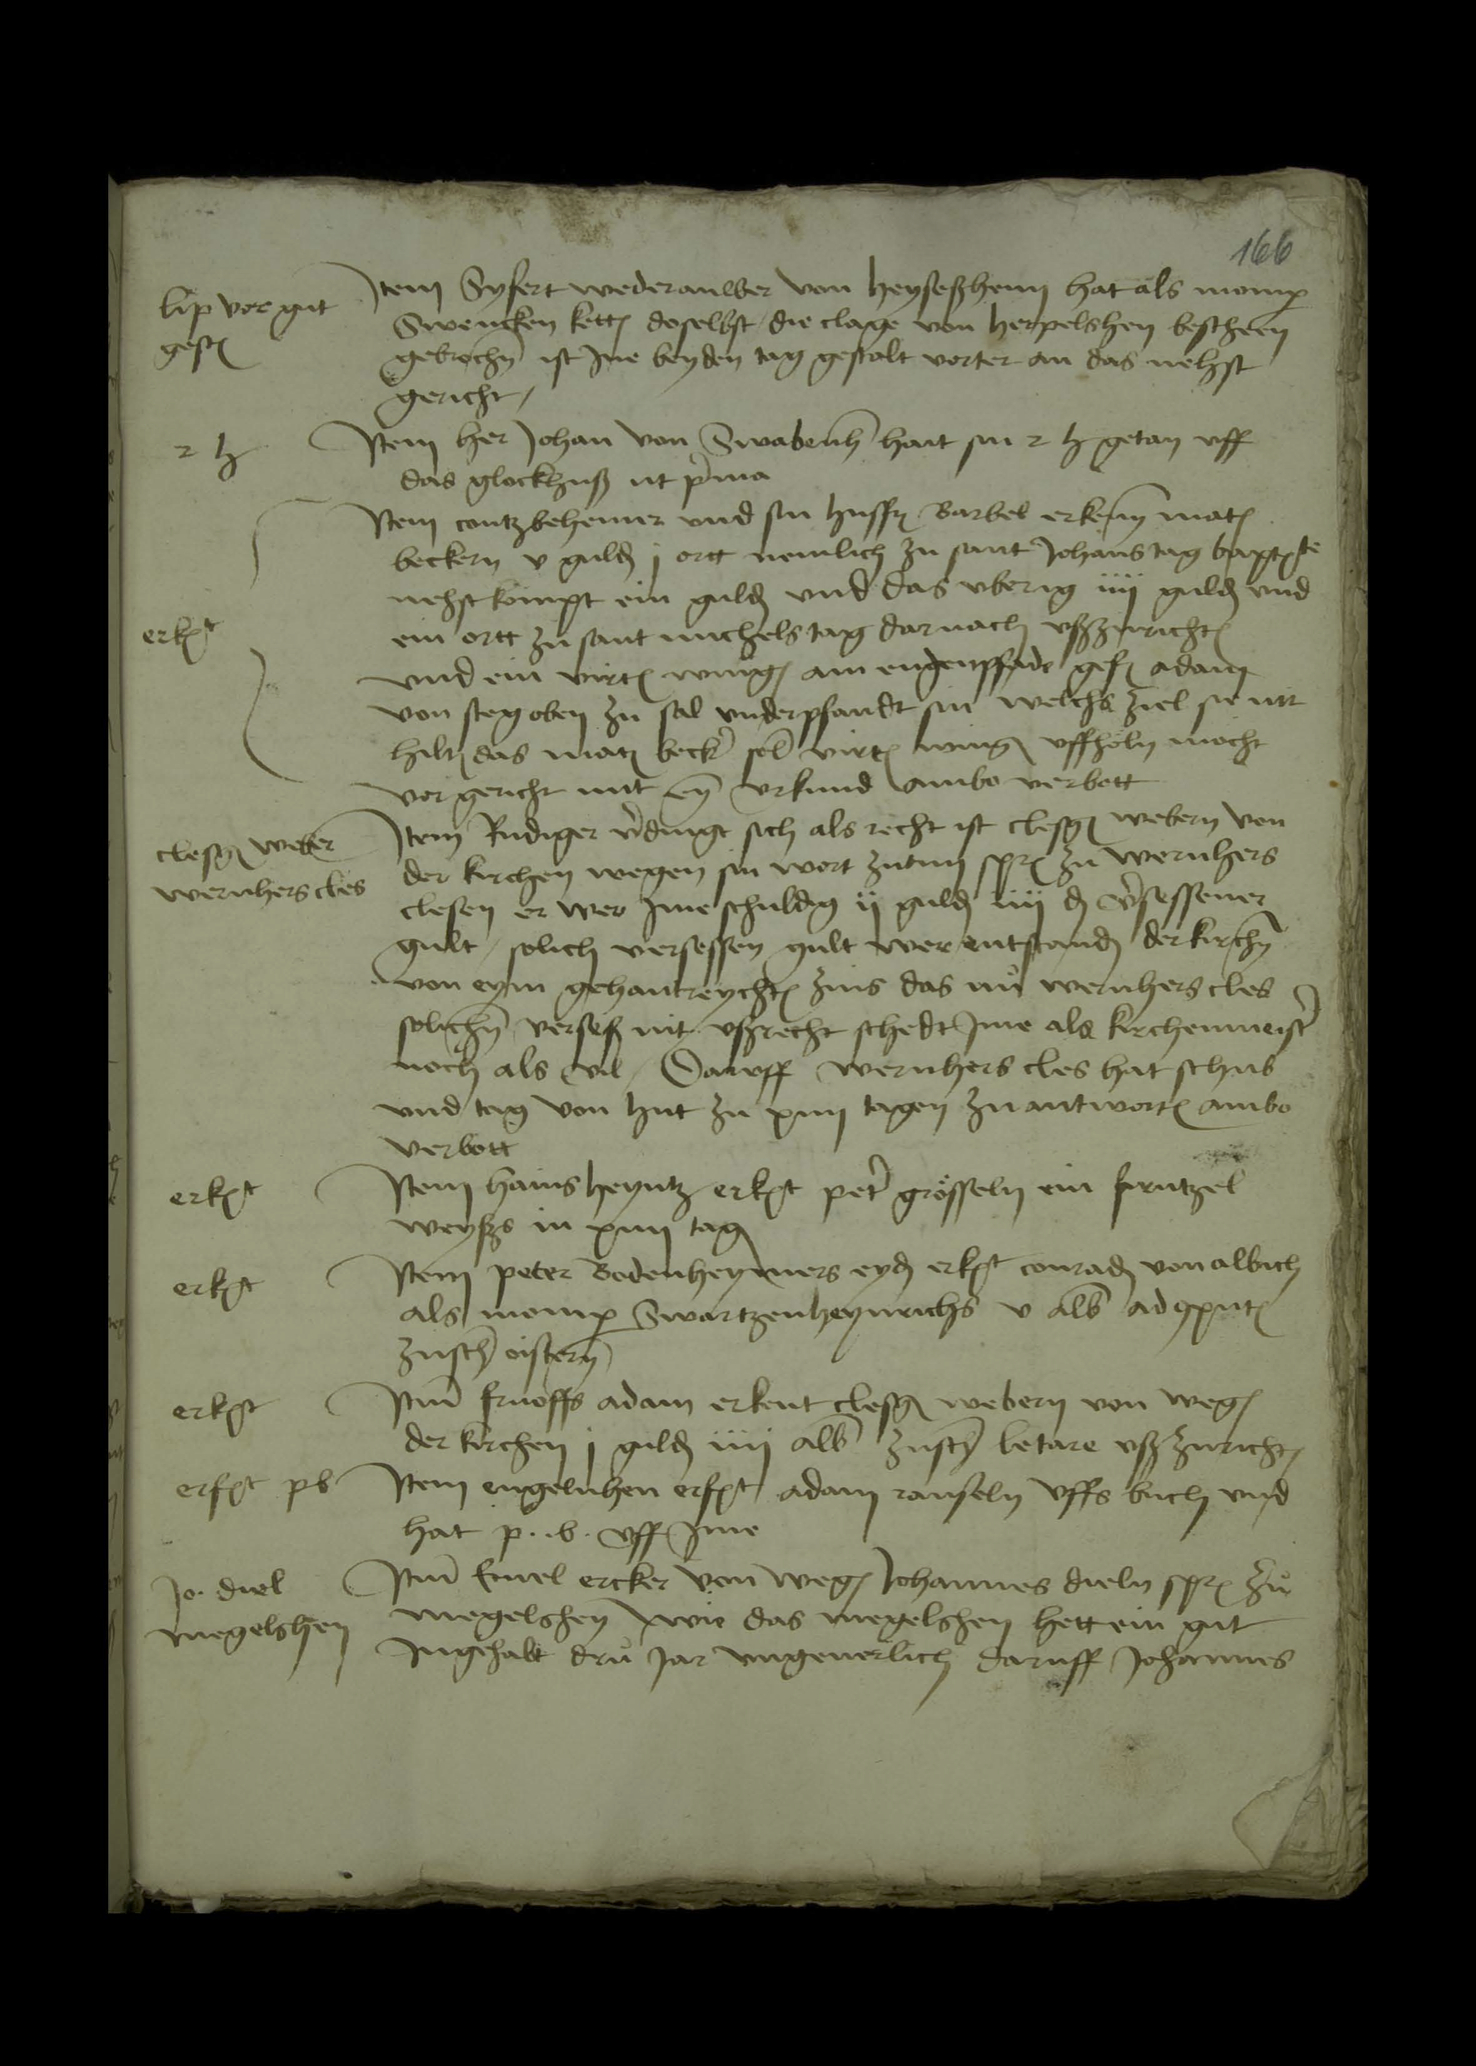 166
lip vor gut
gesch
Item Syfert wederauwer von heyseßheim hat als momp
Swencken ketth doselbst die clage von herpelshen bescheen
gebrochen ist Ime bey den tag gestalt vorter an das nehst
gericht
2 h
Item her Johan von Swabenh hait sin 2 h getan uff
das glockhuß ut prima
Item contz behemer und sin hussfr Barbel erkenn matz
beckern v guld j ort nemlich zu sant Johans tag baptiste
nehst kompt ein guld und das uberig iiij guld und
erkent
ein ortt zu sant michels tag darnach ußzurichten
und ein virtel wing am engen pfade gef adam
von steg oben zu sal underpfandt sin welchs ziel sie nit
hilt das matz beck sol virtel wing uffholn mocht
vor gericht mit eyn urkund ambo verbott
clesgin weber
wernhers cles
Item Rudiger verdingt sich als recht ist clesgin webern von
der kirchen wegen sin wort zutun spricht zu wernhers
clesen er wer Ime schuldig ij guld iiij d versessener
gult solich versessen gult wer entstanden der kirchen
von eym gehantreychten zins das nu wernhers cles
solichen verseß nit ußrecht schedt Ime als kirchenmeister
noch als vil Daruff wernhers cles hat schub
und tag von hut zu xiiij tagen zuantworten ambo
verbott
erkent
Item hans heyntz erkent peter grösseln ein firntzel
weyßs in xiiij tag
erkent
Item peter Bodenheymers eyd erkent conrad von albich
als momp Swartzenheynrichs v alb ad computum
zusch oistern
erkent
Item fruoffs adam erkent clesgin webern von wegen
der kirchen j guld iiij alb zusch letare ußzurichten
erfolgt pb
Item engelnhen erfolgt adam ranseln uffs buch und
hat p. b. uff Ime
Jo. diel
megelshen
Item Emel ercker von wegen Johannes dieln spricht zu
megelshen wie das megelshen hett ein gut
Ingehabt dru Jar ungeverlich daruff Johannes